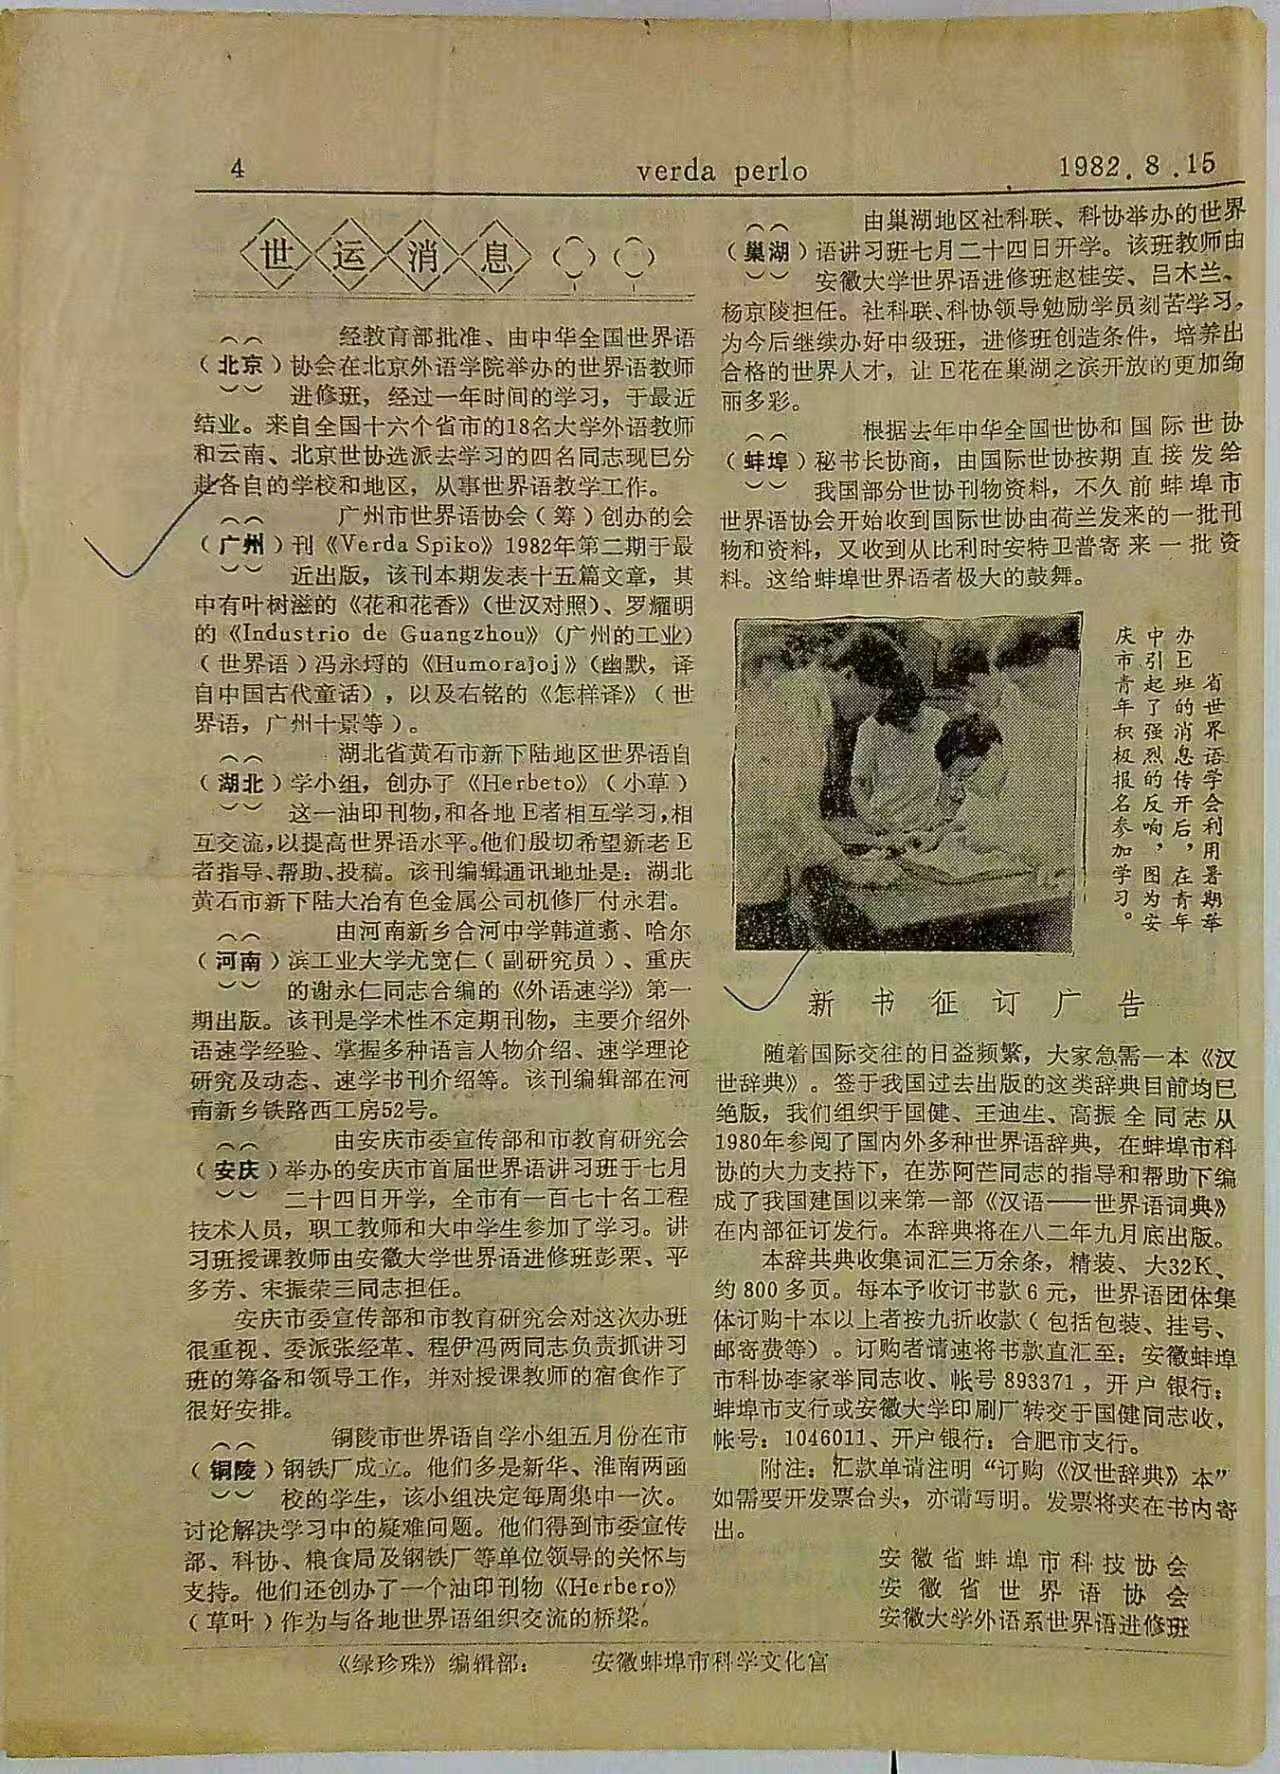 4
verda perlo
1982.8.15
世运消息
经教育部批准、由中华全国世界语
（北京）协会在北京外语学院举办的世界语教师
进修班，经过一年时间的学习，于最近
结业。来自全国十六个省市的18名大学外语教师
和云南、北京世协选派去学习的四名同志现已分
赴各自的学校和地区，从事世界语教学工作。
广州市世界语协会（筹）创办的会
（广州）刊《Verda Spiko》1982年第二期于最
近出版，该刊本期发表十五篇文章，其
中有叶树滋的《花和花香》（世汉对照）、罗耀明
的《Industrio de Guangzhou》（广州的工业）
（世界语）冯永埒的《Humoraĵoj》（幽默，译
自中国古代童话），以及右铭的《怎样译》（世
界语，广州十景等）。
湖北省黄石市新下陆地区世界语自
（湖北）学小组，创办了《Herbeto》（小草）
这一油印刊物，和各地E者相互学习，相
互交流，以提高世界语水平。他们殷切希望新老E
者指导、帮助、投稿。该刊编辑通讯地址是：湖北
黄石市新下陆大冶有色金属公司机修厂付永君。
由河南新乡合河中学韩道翥、哈尔
（河南）滨工业大学尤宽仁（副研究员）、重庆
的谢永仁同志合编的《外语速学》第一
期出版。该刊是学术性不定期刊物，主要介绍外
语速学经验、掌握多种语言人物介绍、速学理论
研究及动态、速学书刊介绍等。该刊编辑部在河
南新乡铁路西工房52号。
由安庆市委宣传部和市教育研究会
（安庆）举办的安庆市首届世界语讲习班于七月
二十四日开学，全市有一百七十名工程
技术人员，职工教师和大中学生参加了学习。讲
习班授课教师由安徽大学世界语进修班彭栗、平
多芳、宋振荣三同志担任。
安庆市委宣传部和市教育研究会对这次办班
很重视、委派张经革、程伊冯两同志负责抓讲习
班的筹备和领导工作，并对授课教师的宿食作了
很好安排。
铜陵市世界语自学小组五月份在市
（铜陵）钢铁厂成立。他们多是新华、淮南两函
校的学生，该小组决定每周集中一次。
讨论解决学习中的疑难问题。他们得到市委宣传
部、科协、粮食局及钢铁厂等单位领导的关怀与
支持。他们还创办了一个油印刊物《Herbero》
（草叶）作为与各地世界语组织交流的桥梁。
由巢湖地区社科联、科协举办的世界
（巢湖）语讲习班七月二十四日开学。该班教师由
安徽大学世界语进修班赵桂安、吕木兰、
杨京陵担任。社科联、科协领导勉励学员刻苦学习，
为今后继续办好中级班，进修班创造条件，培养出
合格的世界人才，让E花在巢湖之滨开放的更加绚
丽多彩。
根据去年中华全国世协和国际世协
（蚌埠）秘书长协商，由国际世协按期直接发给
我国部分世协刊物资料，不久前蚌埠市
世界语协会开始收到国际世协由荷兰发来的一批刊
物和资料，又收到从比利时安特卫普寄来一批资
料。这给蚌埠世界语者极大的鼓舞。
省世界语学会利用暑期举
办E班的消息传开后，在青年
中引起了强烈的反响，图为安
庆市青年积极报名参加学习。
新书征订广告
随着国际交往的日益频繁，大家急需一本《汉
世辞典》。签于我国过去出版的这类辞典目前均已
绝版，我们组织于国健、王迪生、高振全同志从
1980年参阅了国内外多种世界语辞典，在蚌埠市科
协的大力支持下，在苏阿芒同志的指导和帮助下编
成了我国建国以来第一部《汉语——世界语词典》
在内部征订发行。本辞典将在八二年九月底出版。
本辞共典收集词汇三万余条，精装、大32K、
约800多页。每本予收订书款6元，世界语团体集
体订购十本以上者按九折收款（包括包装、挂号、
邮寄费等）。订购者请速将书款直汇至：安徽蚌埠
市科协李家举同志收、帐号893371，开户银行：
蚌埠市支行或安徽大学印刷厂转交于国健同志收，
帐号：1046011、开户银行：合肥市支行。
附注：汇款单请注明“订购《汉世辞典》本”
如需要开发票台头，亦请写明。发票将夹在书内寄
出。
安徽省蚌埠市科技协会
安徽省世界语协会
安徽大学外语系世界语进修班
《绿珍珠》编辑部： 安徽蚌埠市科学文化宫